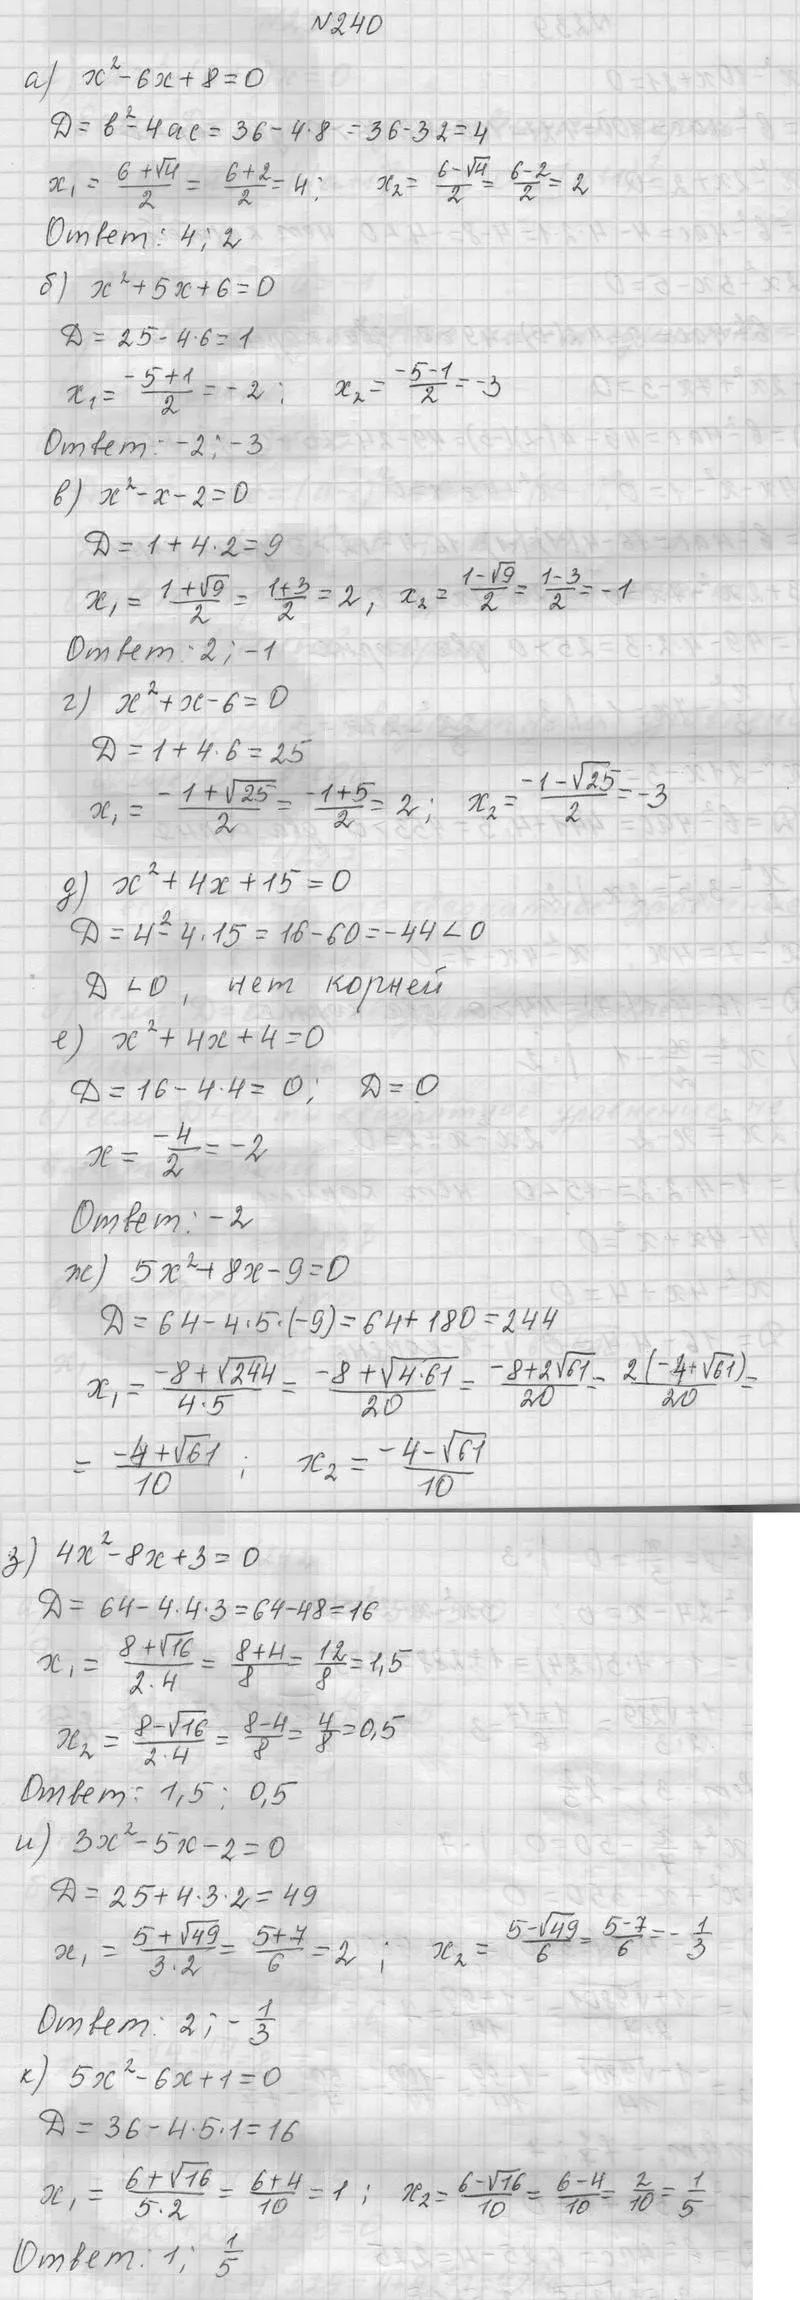 №240
а) x² - 6x + 8 = 0
Д = в² - 4ас = 36 - 4·8 = 36 - 32 = 4
x₁ = (6+√4)/2 = (6+2)/2 = 4; x₂ = (6-√4)/2 = (6-2)/2 = 2
Ответ: 4; 2
б) x² + 5x + 6 = 0
Д = 25 - 4·6 = 1
x₁ = (-5+1)/2 = -2; x₂ = (-5-1)/2 = -3
Ответ: -2; -3
в) x² - x - 2 = 0
Д = 1 + 4·2 = 9
x₁ = (1+√9)/2 = (1+3)/2 = 2, x₂ = (1-√9)/2 = (1-3)/2 = -1
Ответ: 2; -1
г) x² + x - 6 = 0
Д = 1 + 4·6 = 25
x₁ = (-1+√25)/2 = (-1+5)/2 = 2; x₂ = (-1-√25)/2 = -3
д) x² + 4x + 15 = 0
Д = 4² - 4·15 = 16 - 60 = -44 < 0
Д < 0, нет корней
е) x² + 4x + 4 = 0
Д = 16 - 4·4 = 0; Д = 0
x = -4/2 = -2
Ответ: -2
ж) 5x² + 8x - 9 = 0
Д = 64 - 4·5·(-9) = 64 + 180 = 244
x₁ = (-8+√244)/(4·5) = (-8+√(4·61))/20 = (-8+2√61)/20 = 2(-4+√61)/20 =
= (-4+√61)/10 ; x₂ = (-4-√61)/10
з) 4x² - 8x + 3 = 0
Д = 64 - 4·4·3 = 64 - 48 = 16
x₁ = (8+√16)/(2·4) = (8+4)/8 = 12/8 = 1,5
x₂ = (8-√16)/(2·4) = (8-4)/8 = 4/8 = 0,5
Ответ: 1,5; 0,5
и) 3x² - 5x - 2 = 0
Д = 25 + 4·3·2 = 49
x₁ = (5+√49)/(3·2) = (5+7)/6 = 2 ; x₂ = (5-√49)/6 = (5-7)/6 = -1/3
Ответ: 2; -1/3
к) 5x² - 6x + 1 = 0
Д = 36 - 4·5·1 = 16
x₁ = (6+√16)/(5·2) = (6+4)/10 = 1 ; x₂ = (6-√16)/10 = (6-4)/10 = 2/10 = 1/5
Ответ: 1; 1/5